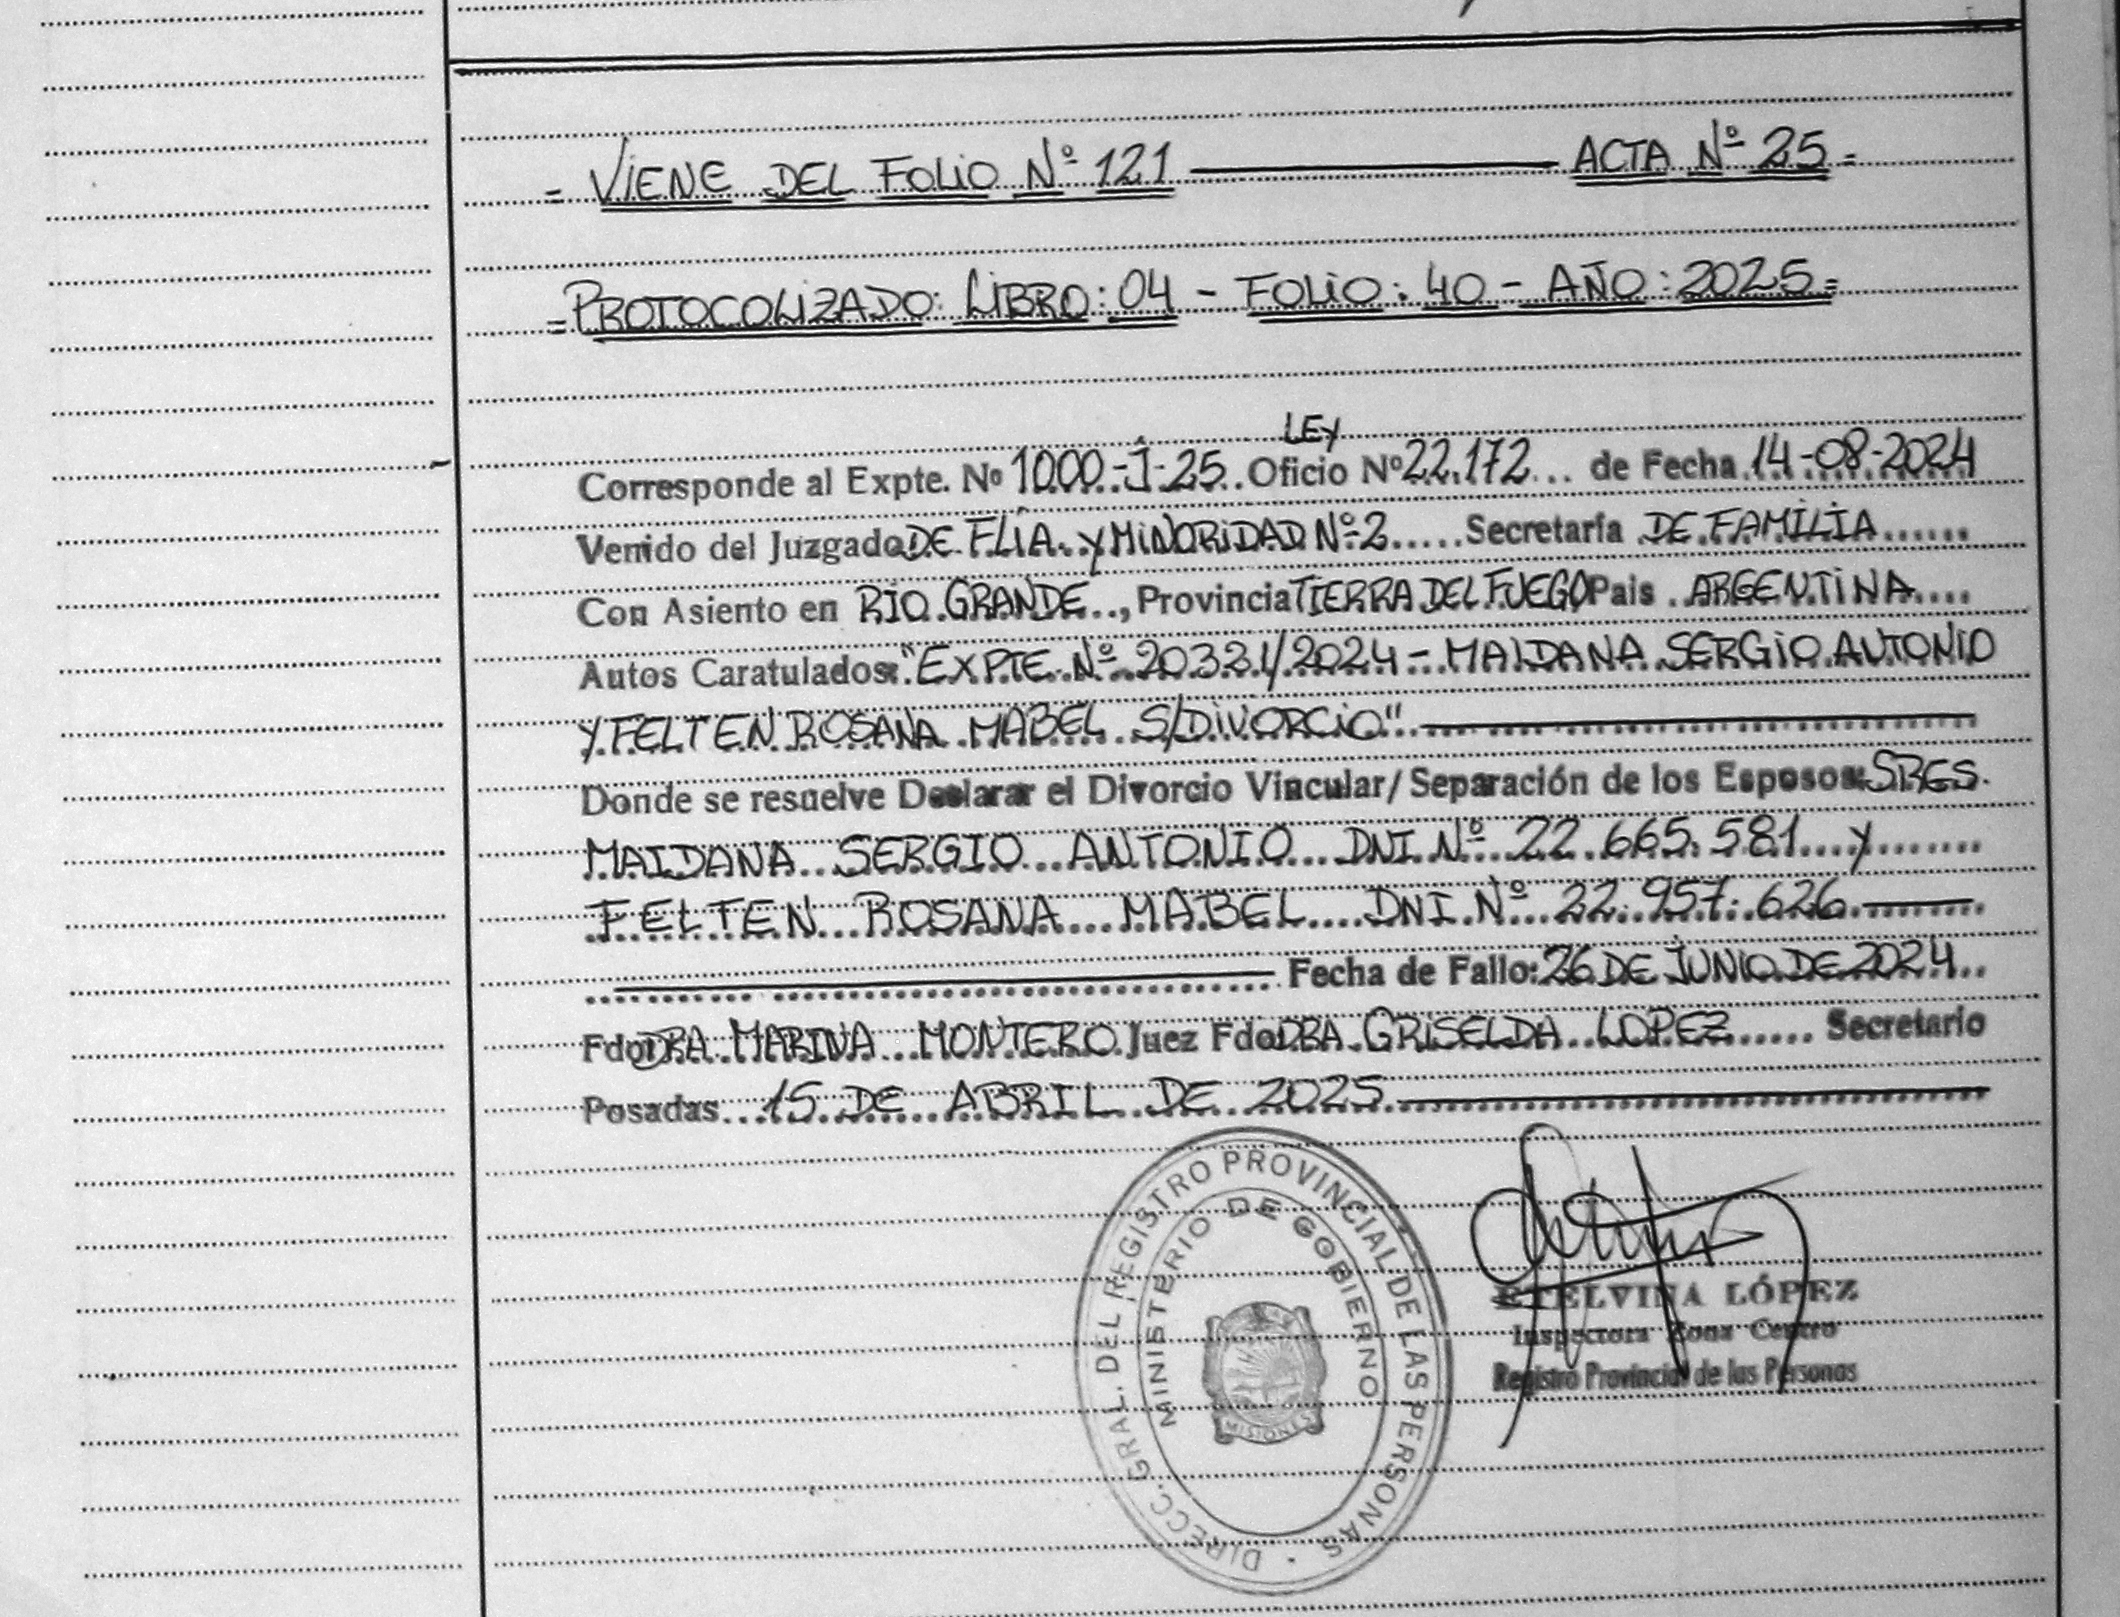 = VIENE DEL FOLIO Nº 121 ——— ACTA Nº 25 =
= PROTOCOLIZADO: LIBRO: 04 - FOLIO: 40 - AÑO: 2025 =
LEY
Corresponde al Expte. Nº 1000-J-25 Oficio Nº 22.172 de Fecha 14-08-2024
Venido del Juzgado DE FLIA. Y MINORIDAD Nº 2 Secretaría DE FAMILIA
Con Asiento en RIO GRANDE, Provincia TIERRA DEL FUEGO Pais ARGENTINA
Autos Caratulados: "EXPTE. Nº 20321/2024 - MAIDANA SERGIO ANTONIO
Y FELTEN ROSANA MABEL S/DIVORCIO"
Donde se resuelve Declarar el Divorcio Vincular/Separación de los Esposos: SRES.
MAIDANA SERGIO ANTONIO DNI Nº 22.665.581 y
FELTEN ROSANA MABEL DNI Nº 22.957.626
Fecha de Fallo: 26 DE JUNIO DE 2024
Fdo: DRA MARINA MONTERO Juez Fdo: DRA. GRISELDA LOPEZ Secretario
Posadas 15 DE ABRIL DE 2025
DIRECC. GRAL. DEL REGISTRO PROVINCIAL DE LAS PERSONAS
MINISTERIO DE GOBIERNO
MISIONES
ETELVINA LÓPEZ
Inspectora Zona Centro
Registro Provincial de las Personas